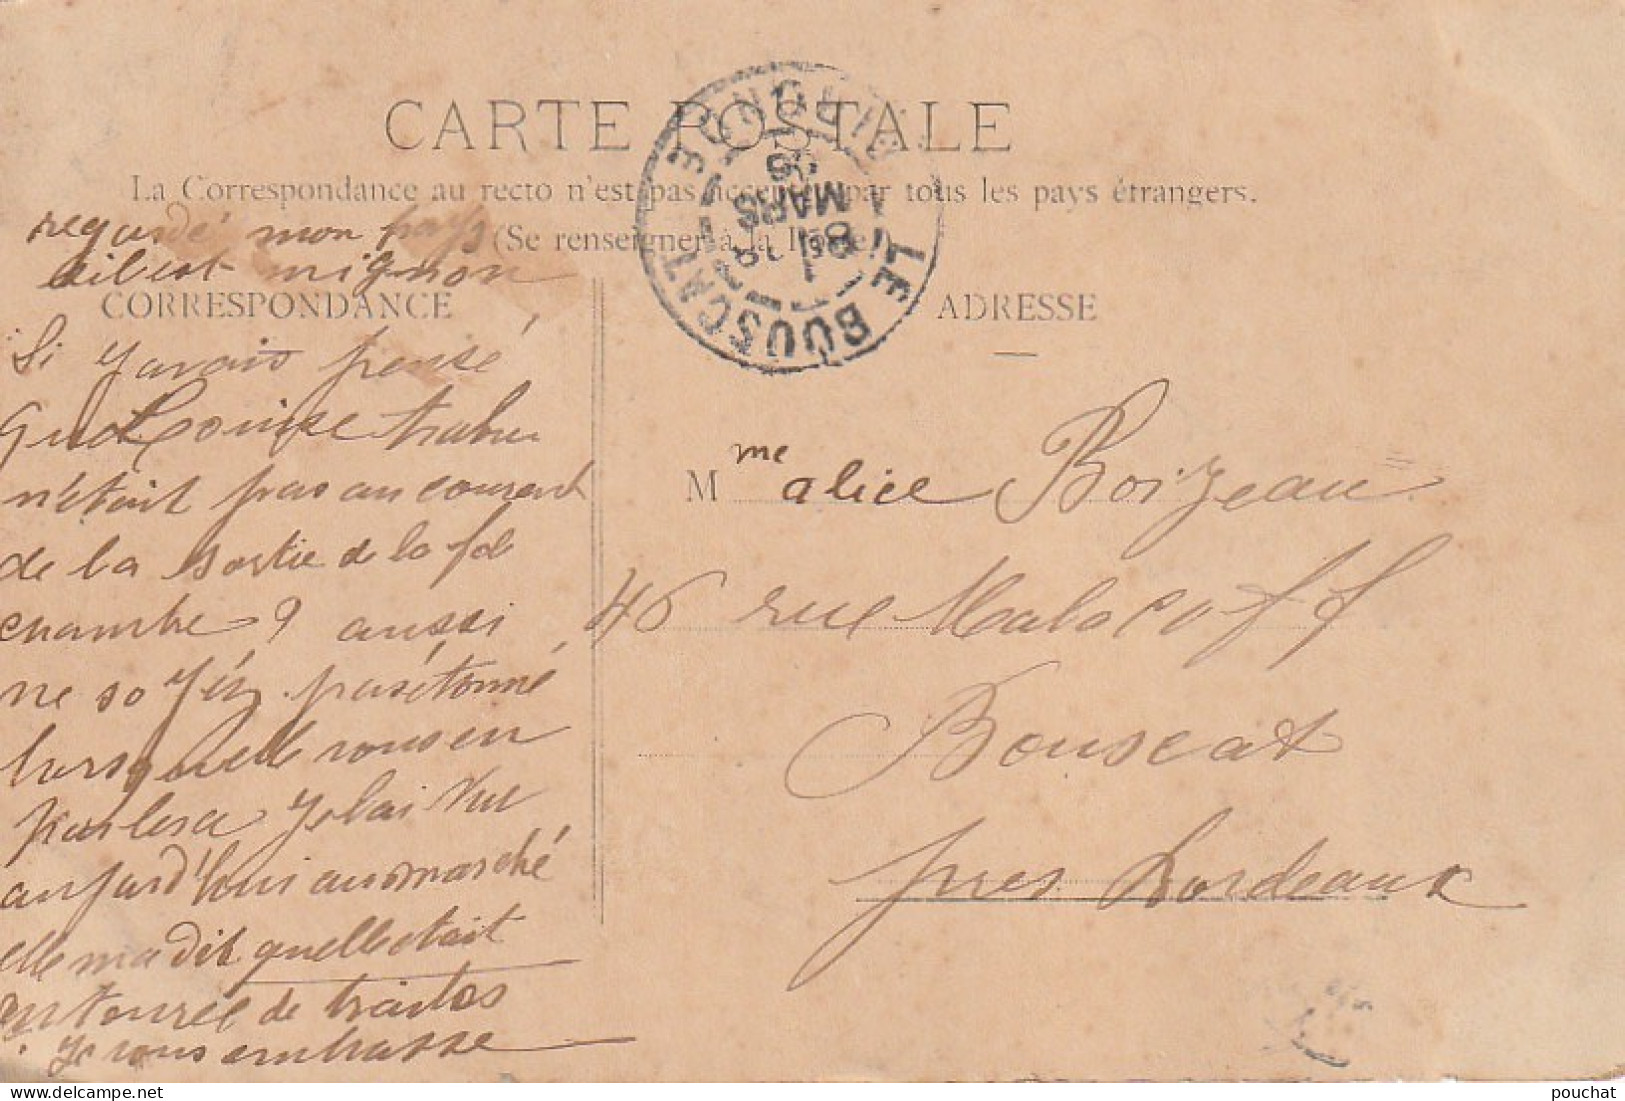 CARTE POSTALE
La Correspondance au recto n'est pas acceptée par tous les pays étrangers.
(Se renseigner à la Poste)
LE BOUSCAT
GIRONDE
MARS
regardé mon pays
sil est mignon
CORRESPONDANCE
ADRESSE
Si javais pensé
que Louise
n'était pas au courant
de la sortie de la
chambre ? aussi
ne so yéz pas étonné
lorsquelle vous en
parlera je lai vu
aujard'hui au marché
elle ma dit quelle était
entourée de traitos
je vous embrasse
Mme alice Boizeau
46 rue Malacoff
Bouscat
pres Bordeaux
pouchat